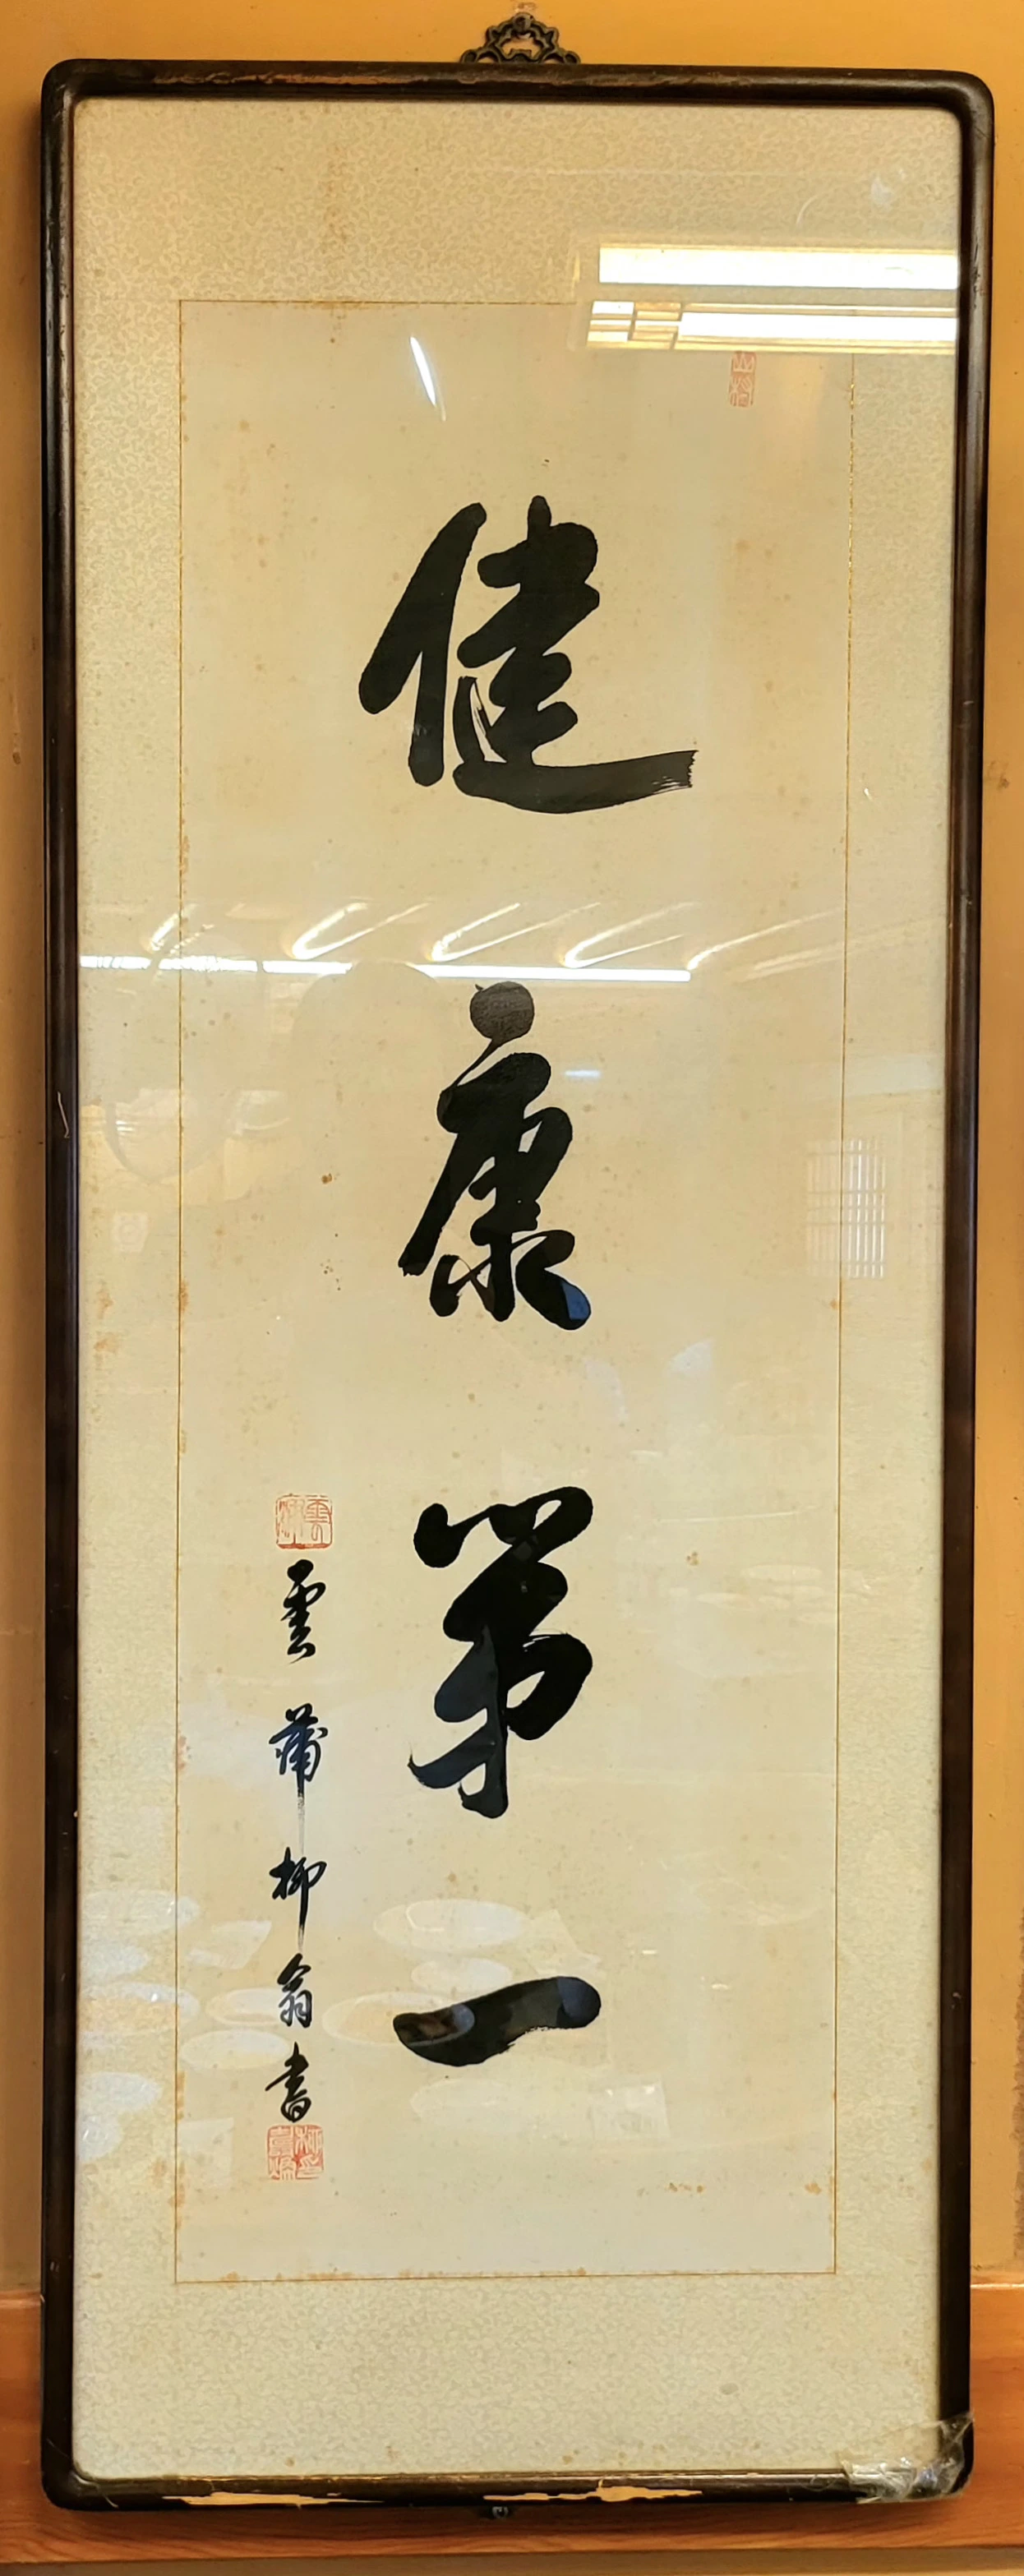 健康第一
雲蒲柳翁書